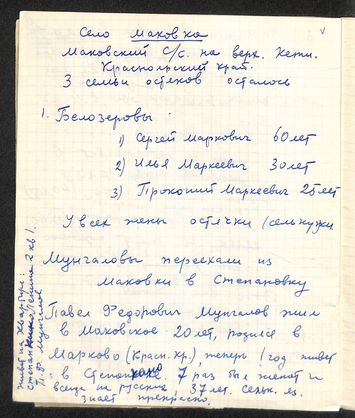 Село Маковка
Маковский с/с. на верх. Кети.
Красноярский край.
3 семьи остяков осталось
1. Белозеровы:
1) Сергей Маркович 60 лет
2) Илья Маркеевич 30 лет
3) Прокопий Маркеевич 25 лет
У всех жены остячки (селькупки
Мунгаловы переехали из
Маковки в Степановку
Павел Федорович Мунгалов жил
в Маковское 20 лет, родился в
Марково (Красн. кр.), теперь 1 год живет
в Степановке. 7 раз был женат и
всегда на русских. 37 лет. Сельк. яз.
знает прекрасно.
живет на квартире:
П.Ф. Мунгалов